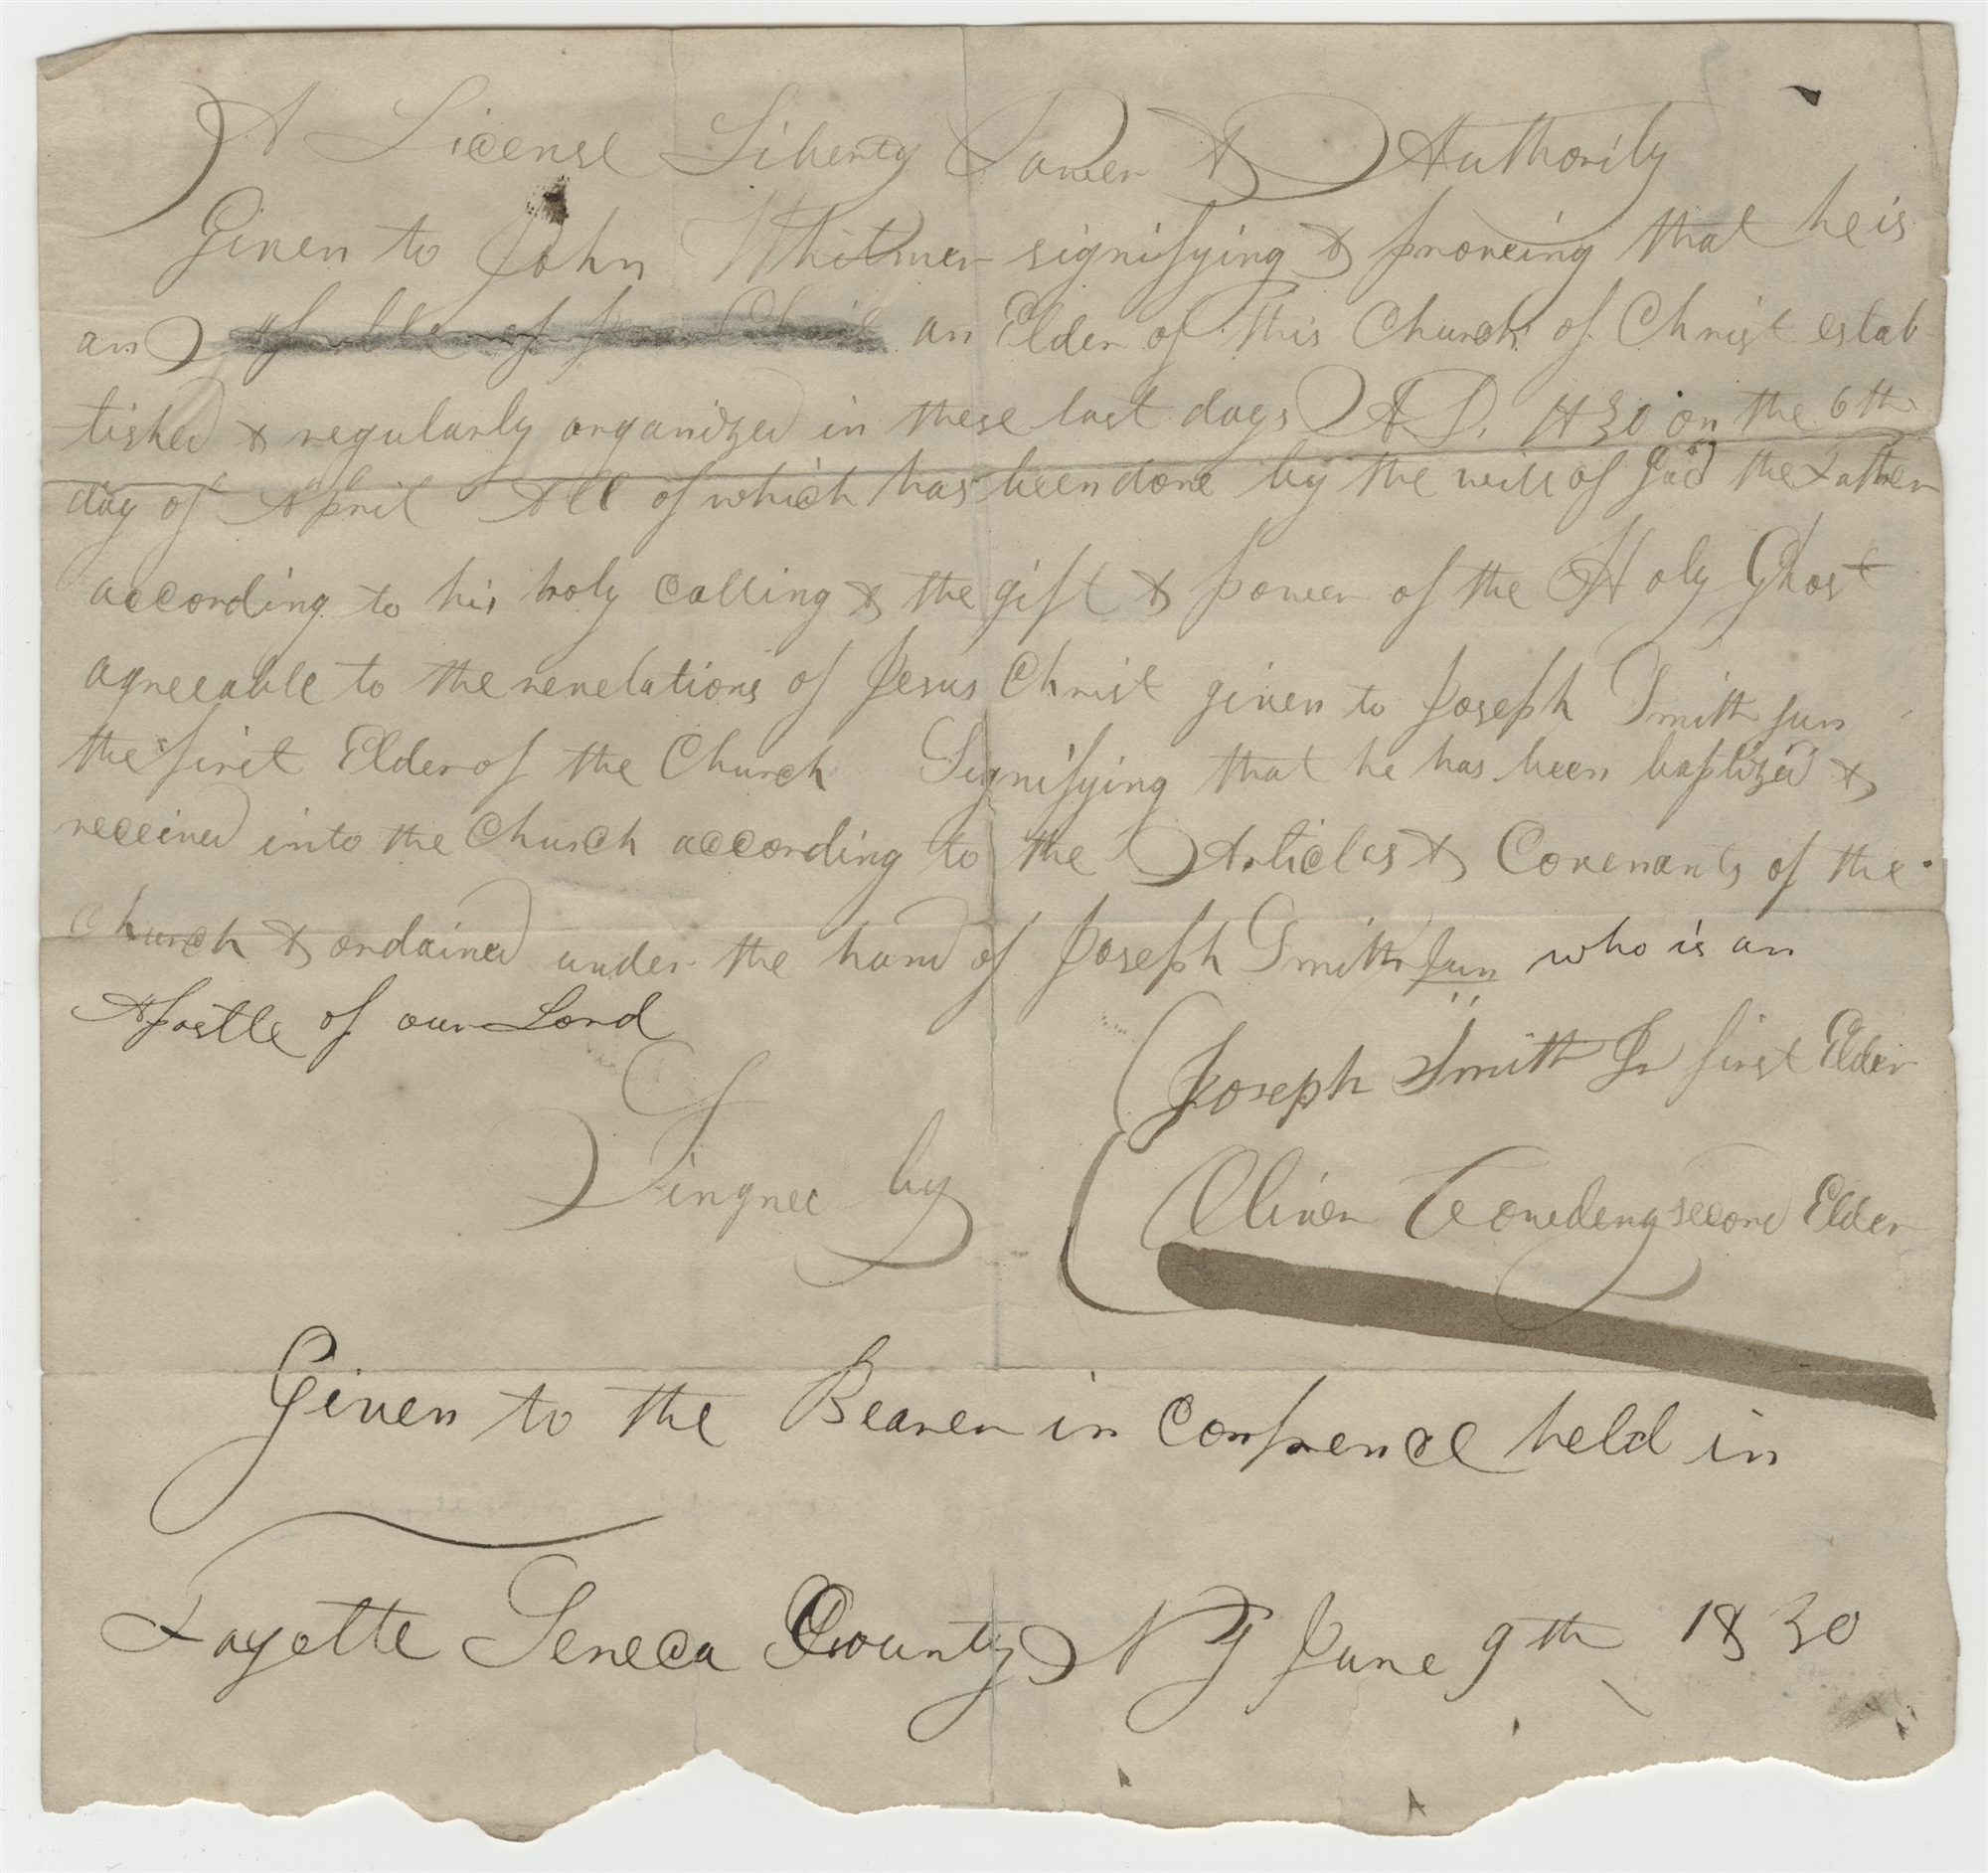 A License Liberty Power & Authority
Given to John Whitmer signifying & proveing that he is
an Apostle of Jesus Christ an Elder of this Church of Christ estab
lished & regularly organized in these last days AD. 1830 on the 6th
day of April All of which has been done by the will of God the Father
according to his holy calling & the gift & power of the Holy Ghost
agreeable to the revelations of Jesus Christ given to Joseph Smith Jun
the first Elder of the Church Signifying that he has been baptized &
received into the Church according to the Articles & Covenants of the
Church & ordained under the hand of Joseph Smith Jun who is an
Apostle of our Lord
Joseph Smith Jr first Elder
Singned by
Oliver Cowdery second Elder
Given to the Bearer in Confrence held in
Fayette Seneca County N Y June 9th 1830